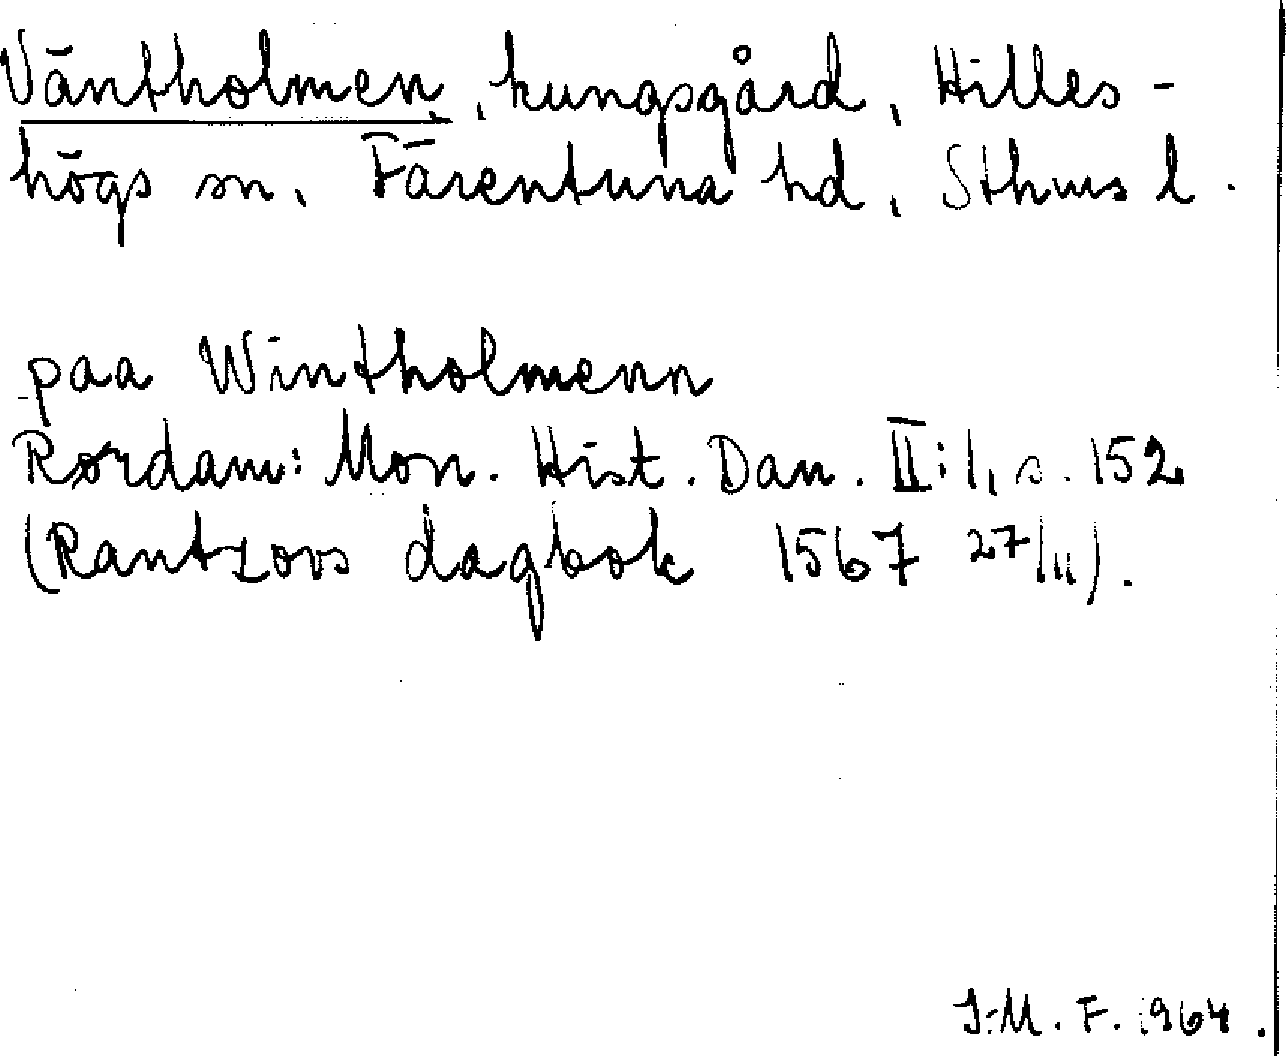 Väntholmen, kungsgård, Hilles-
högs sn, Färentuna hd, Sthms l.
paa Wintholmenn
Rørdam: Mon. Hist. Dan. II:1, s. 152
(Rantzovs dagbok 1567 27/11).
I-M. F. 1964.